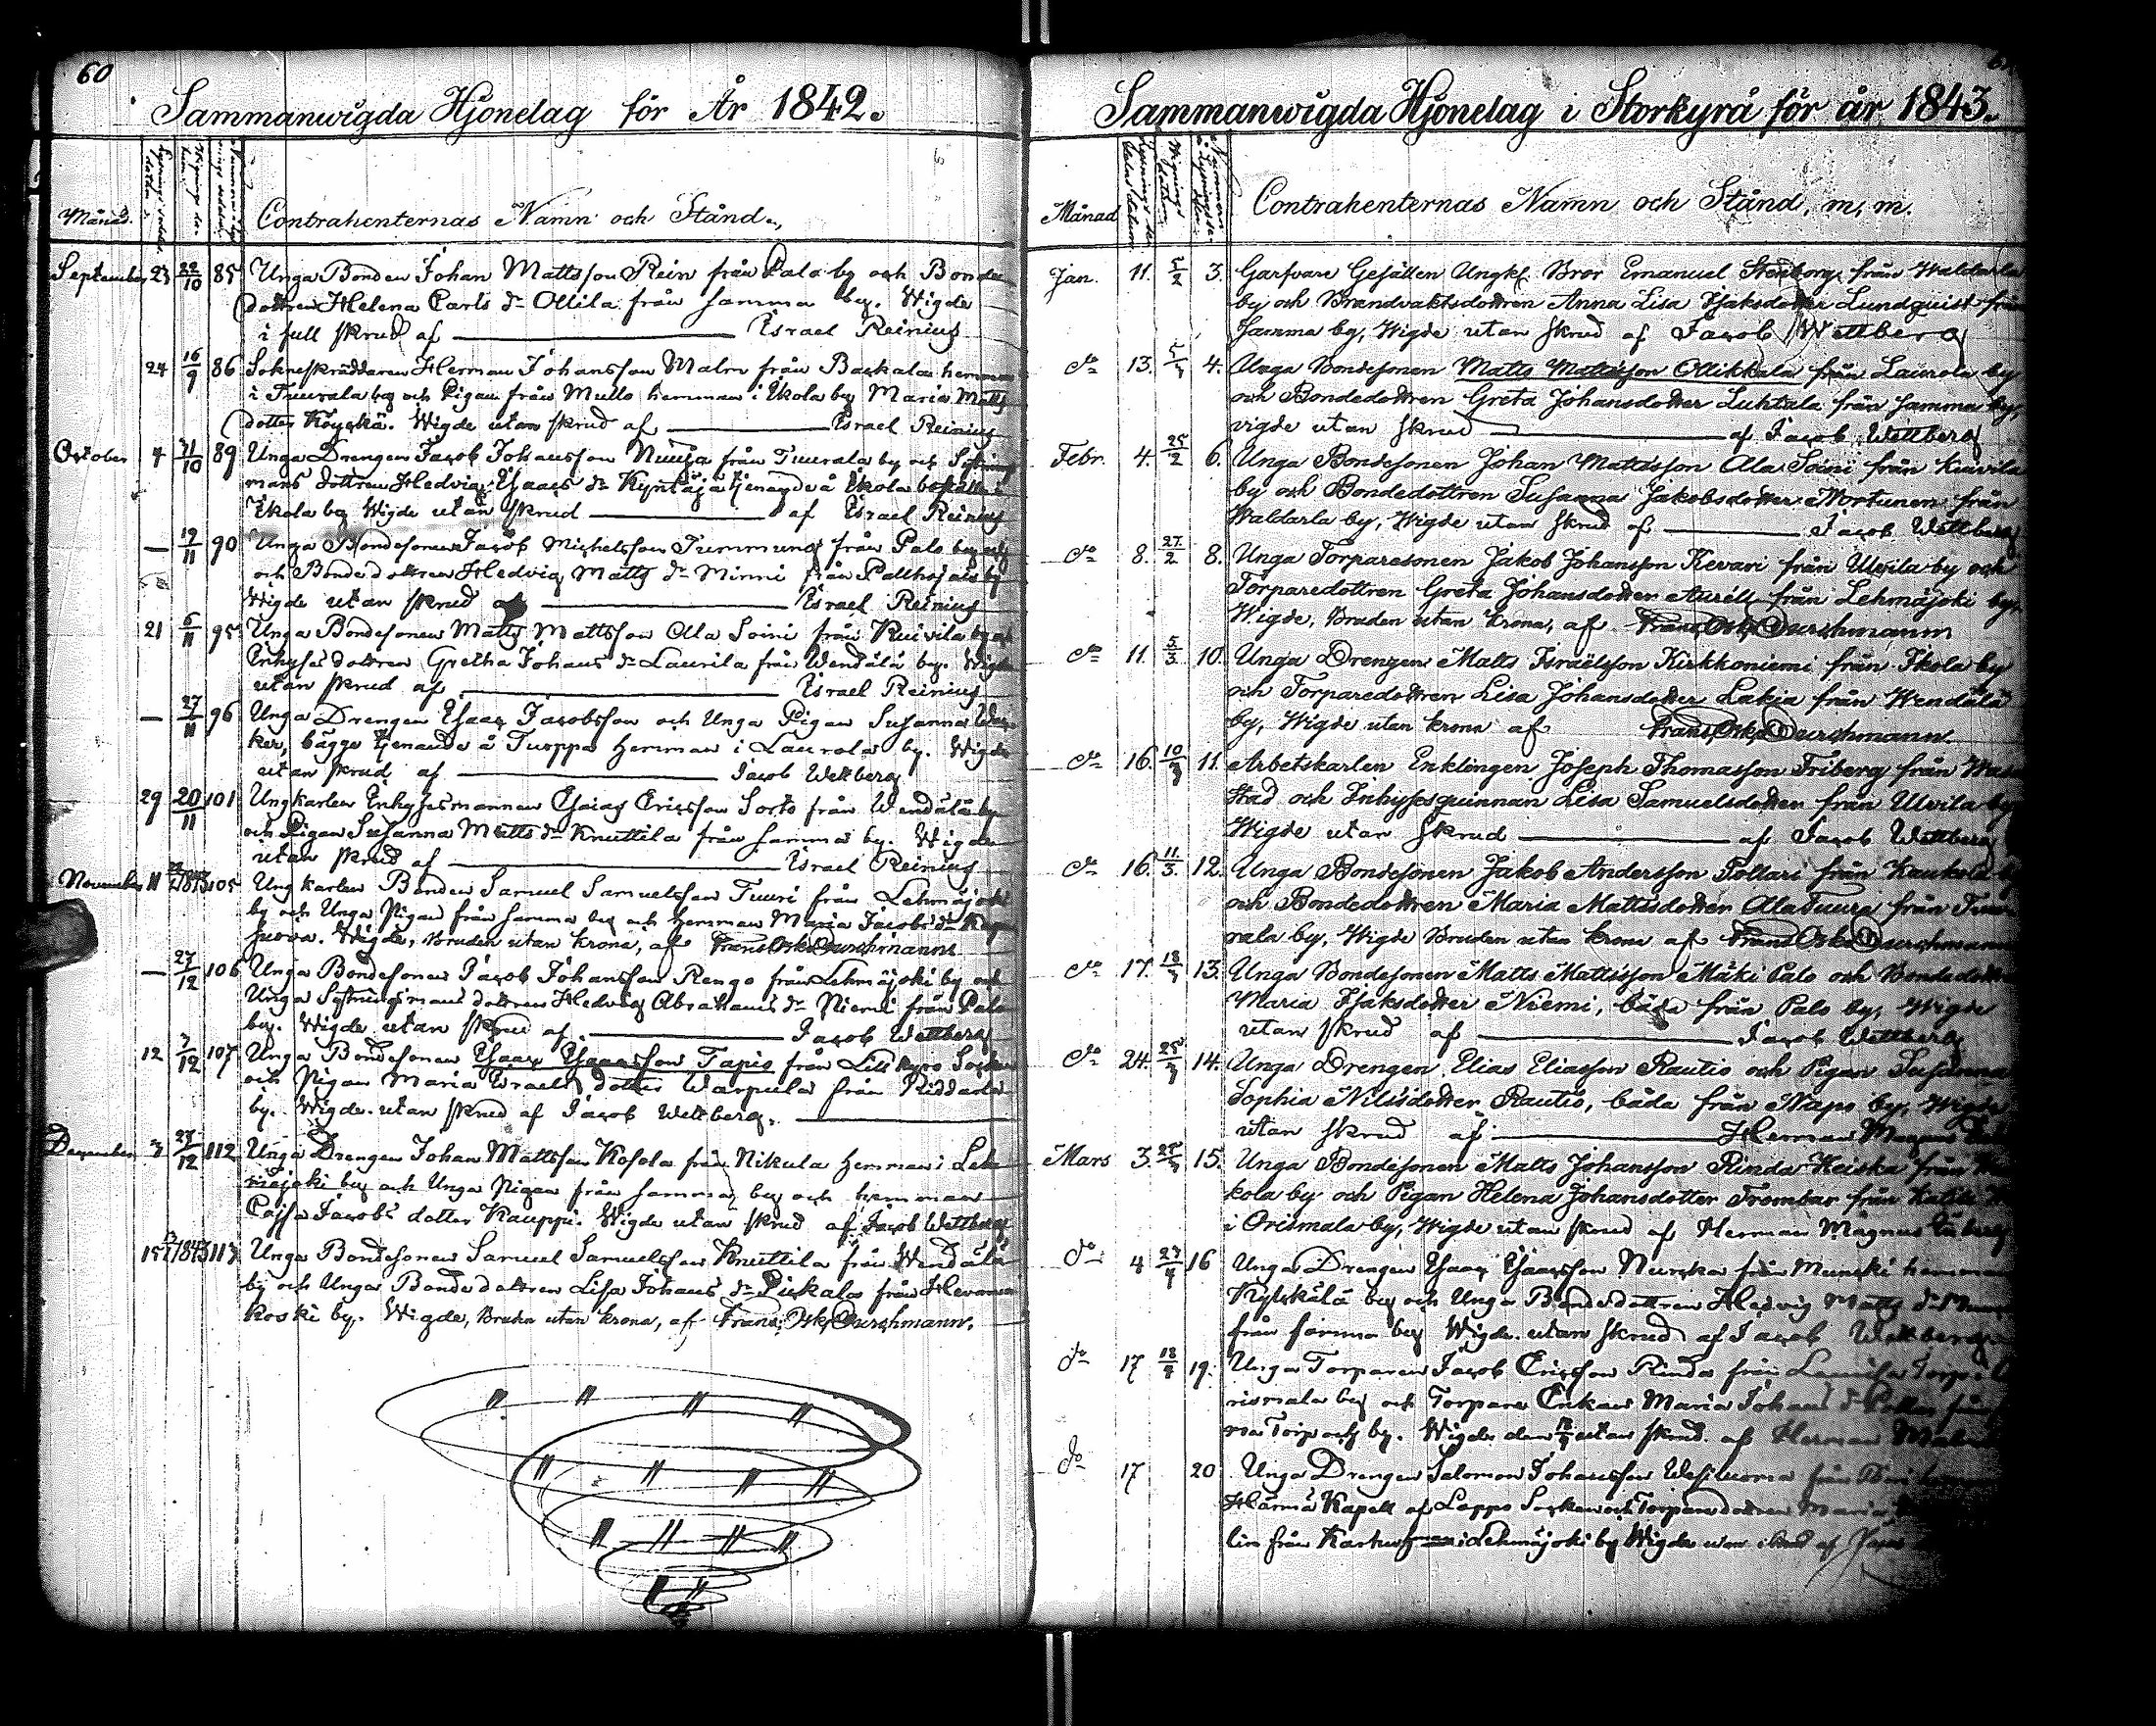 60
Sammanwigda Hjonelag för År 1842.
Månad.
Contrahenternas Namn och Stånd.
September 23 22/10 85 Unga Bonden Johan Mattsson Rein från Palo by och Bonde
dottren Helena Carls dr Ollila från samma by. Wigde
i full skrud af Israel Reinius
24 16/9 86 Sokneskräddaren Herman Johansson Malm från hemman
i Tuurala by och Pigan från Mullo hemman i Ikola by Maria Matts
dotter Köykkä. Wigde utan skrud af Israel Reinius
October 4 31/10 89 Unga Drengen Jacob Johansson från Tuurala by och Sytnings
mans dottren Hedvig Esaacs dr Kyntäjä tjenande å Ikola
Ikola by Wigde utan skrud af Israel Reinius
— 12/11 90 Unga Bondesonen Jacob Michelsson Tummung från Palo by
och Bondedottren Hedvig Matts dr Minni från by
Wigde utan skrud af Israel Reinius
21 6/11 95 Unga Bondesonen Matts Mattsson Ala Soini från Kuivila by
Enkyses dottren Gretha Johans dr Laurila från Wendälä by. Wigde
utan skrud af Israel Reinius
— 27/11 96 Unga Drengen Esaac Jacobsson och Unga Pigan Susanna
bägge tjenande å Tuoppo hemman i Laurola by. Wigde
utan skrud af Jacob Wettberg
29 20/11 101 Ungkarlen Inhysesmannen Esaias Ericsson Sorto från Wendälä by
och Pigan Susanna Matts dr Knuttila från samma by. Wigde
utan skrud af Israel Reinius
November 11 1843 105 Ungkarlen Bonden Samuel Samuelsson Tuuri från Lehmäjoki
by och Unga Pigan från samma by och hemman Maria Jacobs dr
Wigde, Bruden utan krona, af Frans Osk. Durchmann
— 27/12 106 Unga Bondesonen Jacob Johansson Rengo från Lehmäjoki by och
Unga Sytningsmans dottren Hedvig Abrahams dr Niemi från Palo
by. Wigde utan skrud af Jacob Wettberg
12 7/12 107 Unga Bondesonen Esaac Esaacsson Tapio från Lill Kyro Socken
och Pigan Maria Israels dotter Warpula från Kiddarla
by. Wigde utan skrud af Jacob Wettberg.
December 3 27/12 112 Unga Drengen Johan Mattsson Kosola från Nikula hemman i Leh
mäjoki by och Unga Pigan från samma by och hemman
Cajsa Jacobs dotter Kauppi. Wigde utan skrud af Jacob Wettberg
15 1843 113 Unga Bondesonen Samuel Samuelsson Knuttila från Wendälä
by och Unga Bondedottren Lisa Johans dr Pukala från Hevon
koski by. Wigde, Bruden utan krona, af Frans Osk. Durchmann.
Sammanwigda Hjonelag i Storkyrå för år 1843.
Månad
Contrahenternas Namn och Stånd, m, m.
Jan. 11. 5/2 3. Garfvare Gesällen Ungk. Bror Emanuel Stenborg från Waldarla
by och Brandvaktsdottren Anna Lisa Isaksdotter Lundquist från
samma by, Wigde utan skrud af Jacob Wettberg
do 13. 4. Unga Bondesonen Matts Mattsson Ollikkala från Laurola by
och Bondedottren Greta Johansdotter Luhtala från samma by,
vigde utan skrud af Jacob Wettberg
Febr. 4. 25/2 6. Unga Bondesonen Johan Mattsson Ala Soini från Kuivila
by och Bondedottren Susanna Jakobsdotter Mortunen från
Waldarla by, Wigde utan skrud af Jacob Wettberg
do 8. 27/2 8. Unga Torparesonen Jakob Johansson Kevari från Ulvila by och
Torparedottren Greta Johansdotter Aurell från Lehmäjoki by,
Wigde, Bruden utan krona, af Frans Osk. Durchmann
do 11. 5/3 10. Unga Drengen Matts Israelsson Kirkkoniemi från Ikola by
och Torparedottren Lisa Johansdotter Lakja från Wendälä
by, Wigde utan krona af Frans Osk. Durchmann.
do 16. 10/3 11. Arbetskarlen Enklingen Joseph Thomasson Friberg från Wasa
Stad och Inhysesquinnan Lisa Samuelsdotter från Ulvila by
Wigde utan skrud af Jacob Wettberg
do 16. 11/3 12. Unga Bondesonen Jakob Andersson Pollari från Kaukola by
och Bondedottren Maria Mattsdotter Ala Tuura från Tuu
rala by, Wigde Bruden utan krona af Frans Osk. Durchmann
do 17. 18/3 13. Unga Bondesonen Matts Mattsson Mäki Palo och Bondedottren
Maria Isaksdotter Niemi, båda från Palo by, Wigde
utan skrud af Jacob Wettberg
do 24. 25/3 14. Unga Drengen Elias Eliasson Rautio och Pigan Susanna
Sophia Nilsdotter Rautio, båda från Napo by, Wigde
utan skrud af Herman Magnus
Mars 3. 15. Unga Bondesonen Matts Johansson Rinda Heiska från
kola by och Pigan Helena Johansdotter Frombar från
i Orismala by, Wigde utan skrud af Herman Magnus Taberg
do 4 23/4 16 Unga Drengen Esaac Esaacsson Murska från hemman
Kylkälä by och Unga Bondedottren Hedvig Matts dr
från samma by Wigde utan skrud af Jacob Wettberg
do 17 18/4 19. Unga Torparen Jacob Ericsson Rinda från Torp i O
rismala by och Torpare Enkan Maria Johans dr från
Torp och by. Wigde den utan skrud af Herman
do 17 20 Unga Drengen Salomon Johansson från
Härmä Kapell af Lappo Socken och Torparedottren Maria
lin från i Lehmäjoki by Wigde utan skrud af